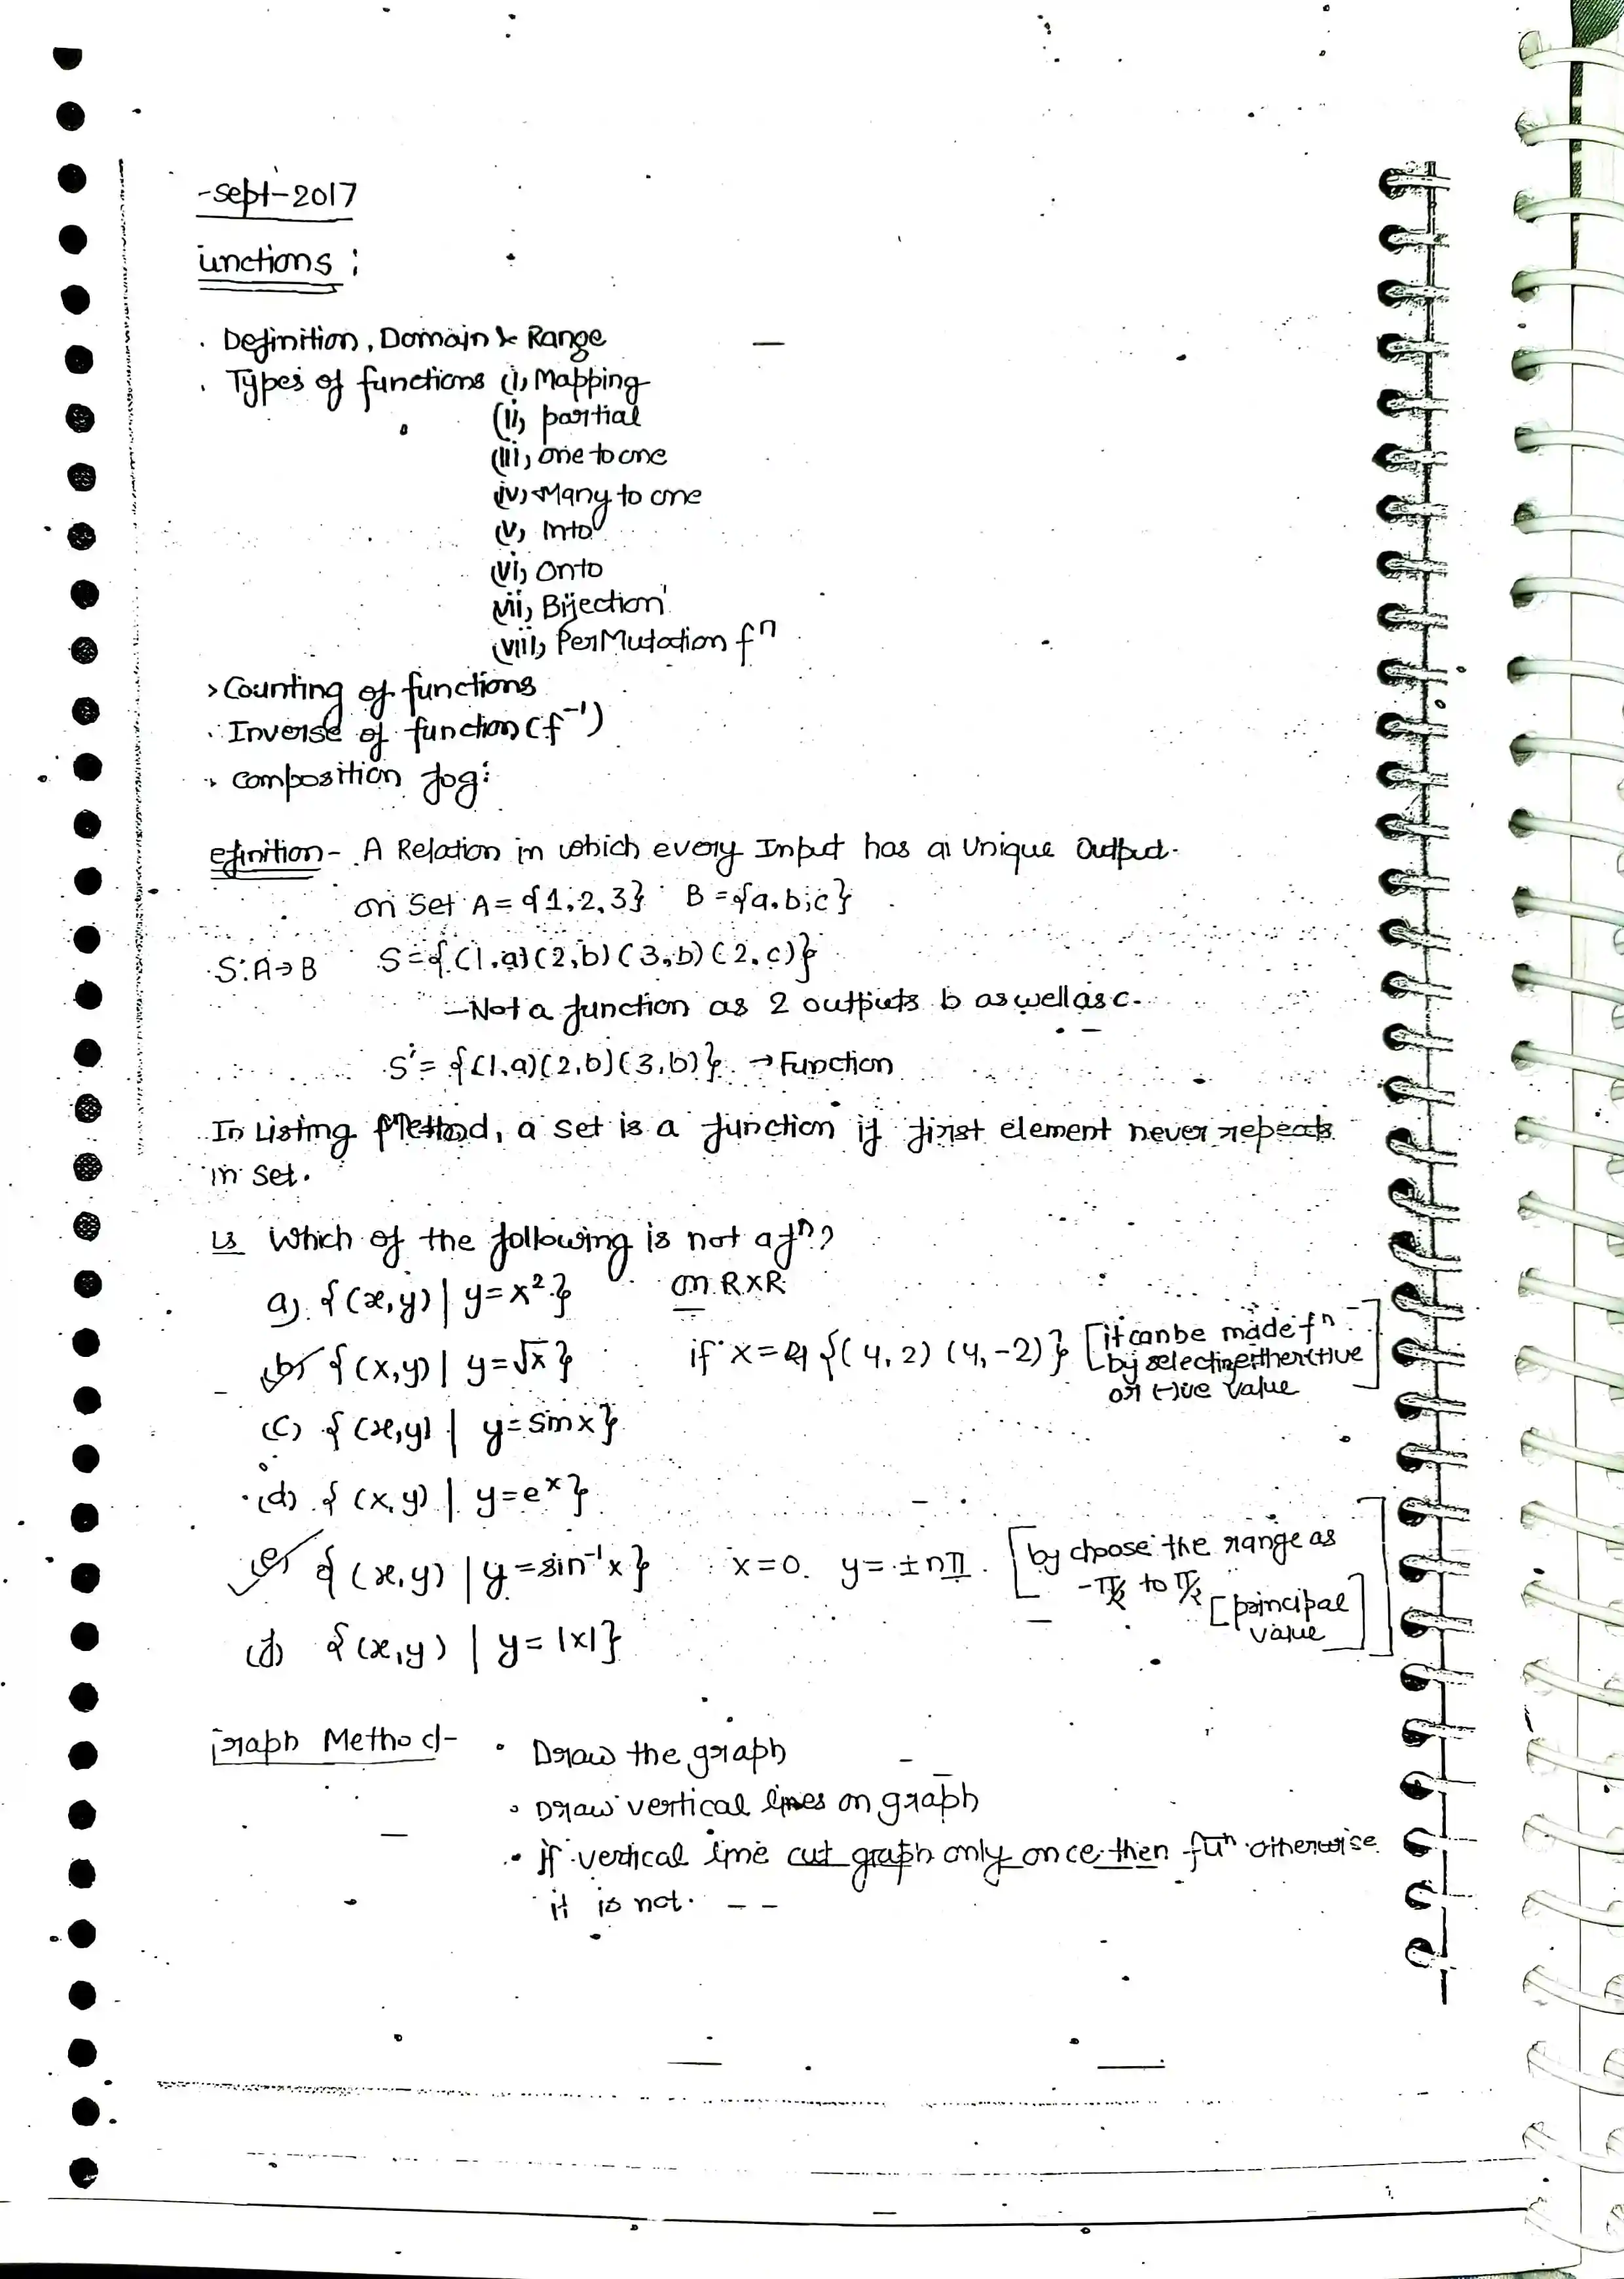 -Sept-2017
unctions :
· Definition, Domain & Range
· Types of functions (i) Mapping
(ii) partial
(iii) one to one
(iv) Many to one
(v) Into
(vi) Onto
(vii) Bijection
(viii) PerMutation fⁿ
> Counting of functions
· Inverse of function (f⁻¹)
> composition fog:
efinition - A Relation in which every Input has a Unique Output.
on Set A = {1,2,3} B = {a,b,c}
S: A→B S = {(1,a)(2,b)(3,b)(2,c)}
- Not a function as 2 outputs b as well as c.
S' = {(1,a)(2,b)(3,b)} → Function
In Listing Method, a set is a function if first element never repeats
in set.
Which of the following is not a fⁿ?
a) {(x,y) | y = x²} on R×R
(b) {(x,y) | y = √x} if x = 4 {(4,2)(4,-2)} [it can be made fⁿ
by selecting either (+)ive
or (-)ive value]
(c) {(x,y) | y = sin x}
(d) {(x,y) | y = eˣ}
(e) {(x,y) | y = sin⁻¹x} x=0. y = ±nπ. [by choose the range as
-π/2 to π/2 [principal
value]]
(f) {(x,y) | y = |x|}
raph Method- • Draw the graph
• Draw vertical lines on graph
• if vertical line cut graph only once then fuⁿ otherwise
it is not.